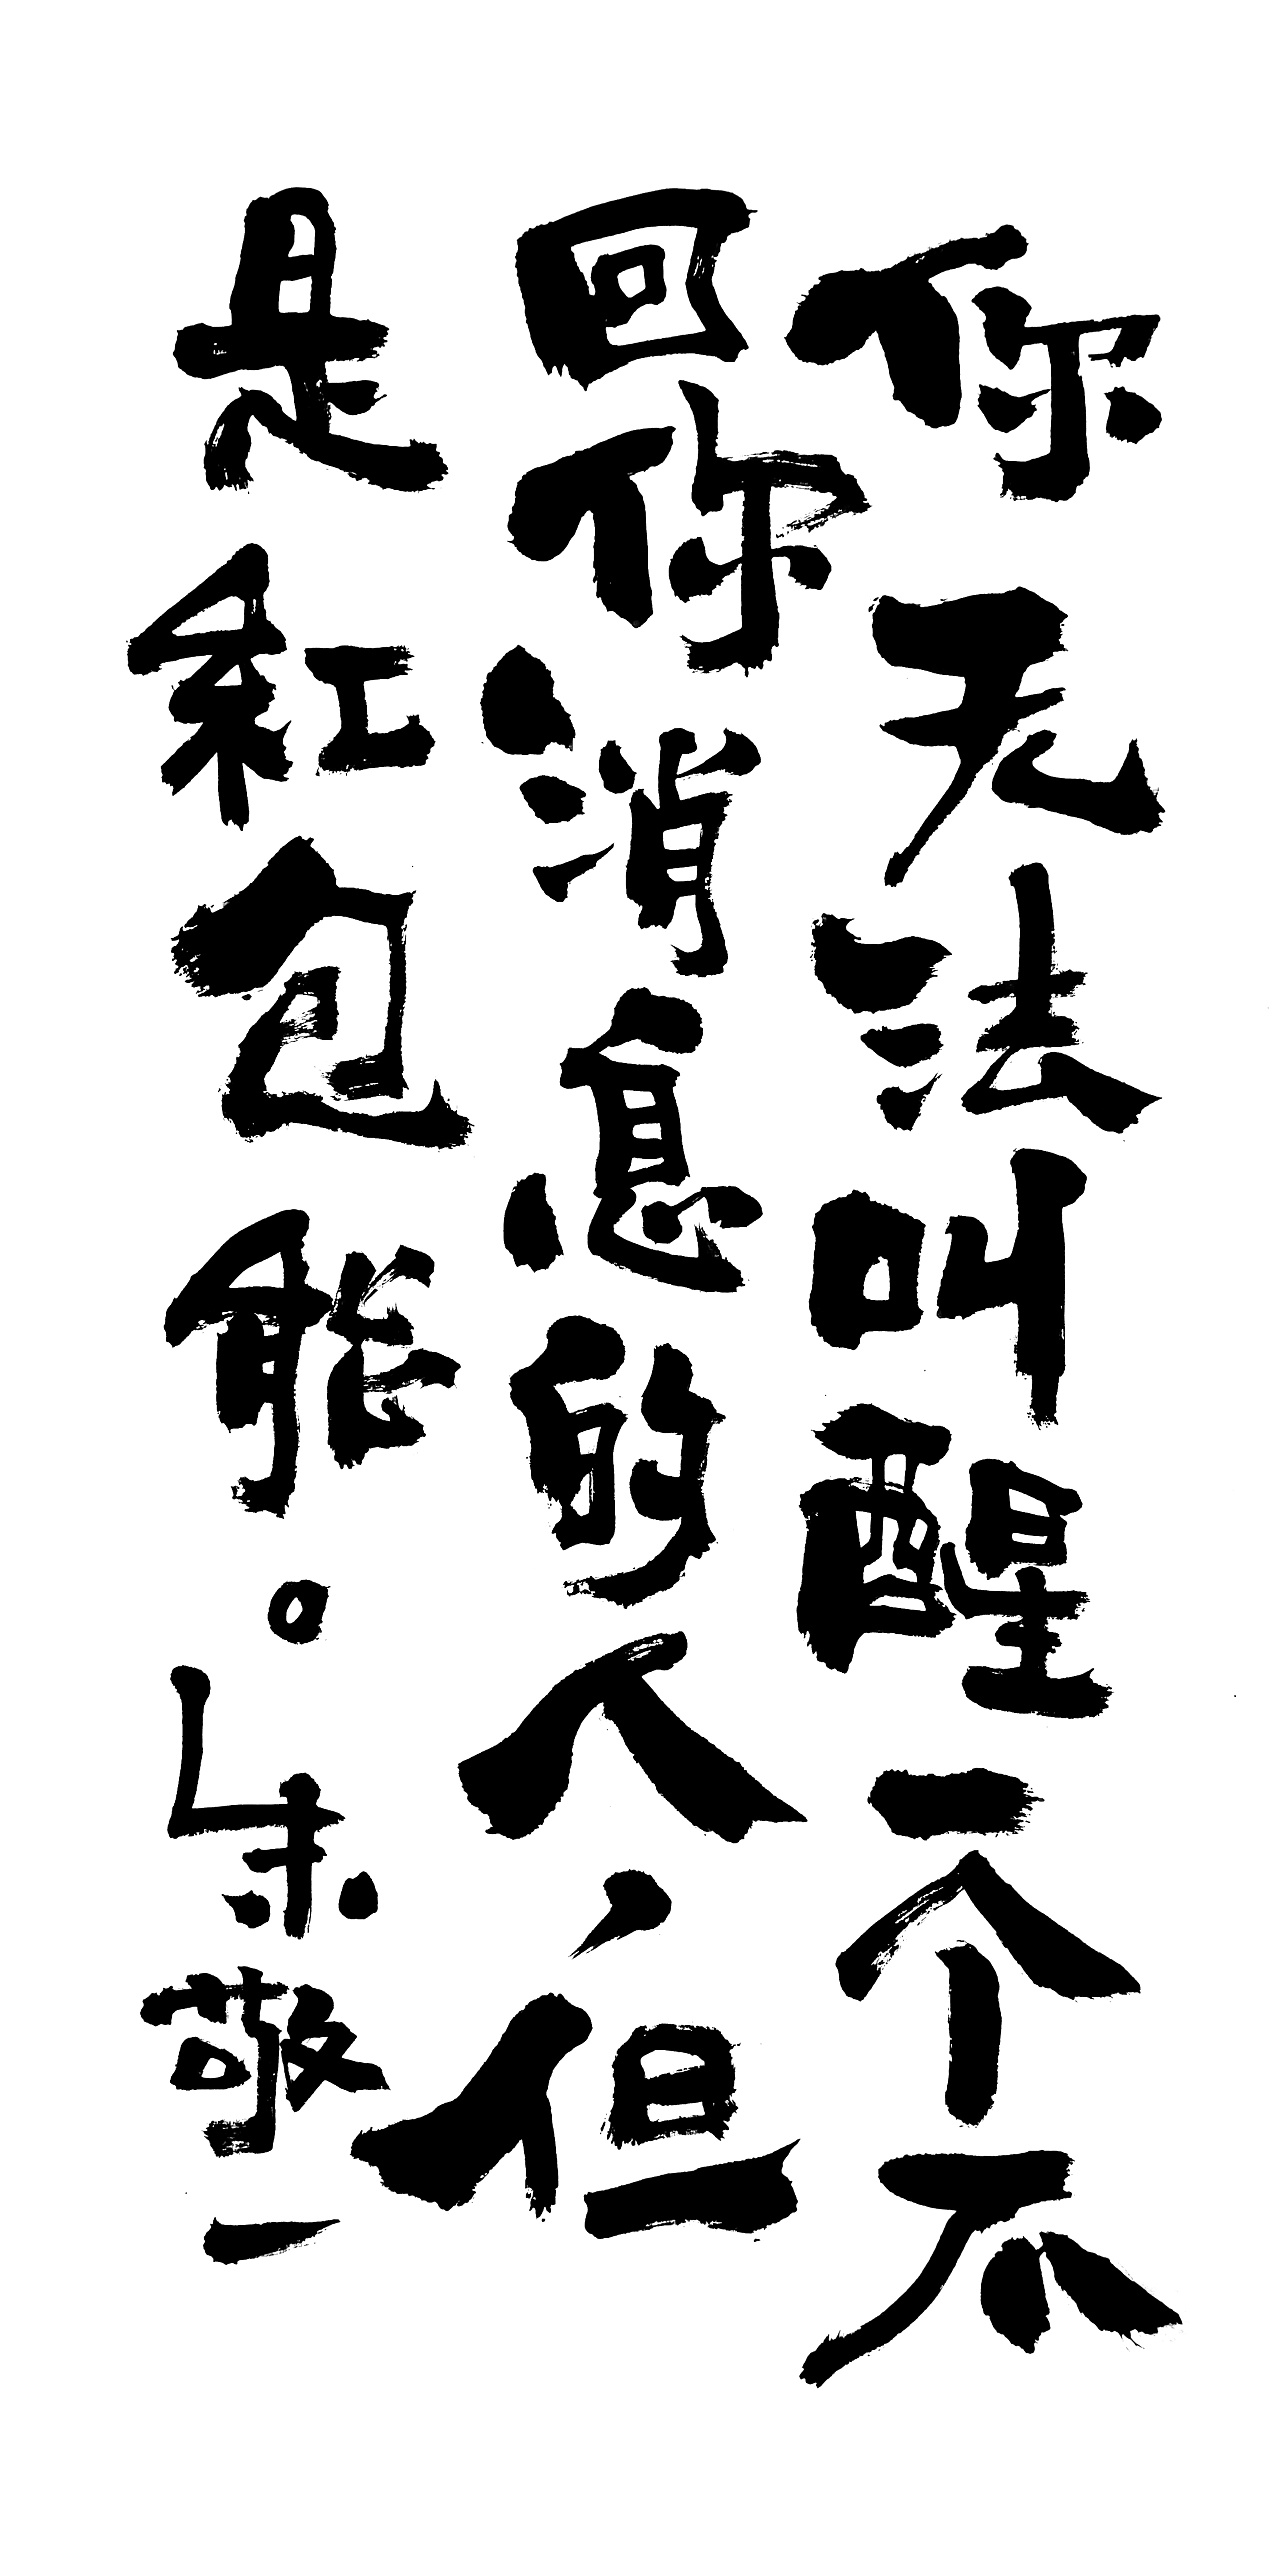 你无法叫醒一个不
回你消息的人，但
是紅包能。朱敬一